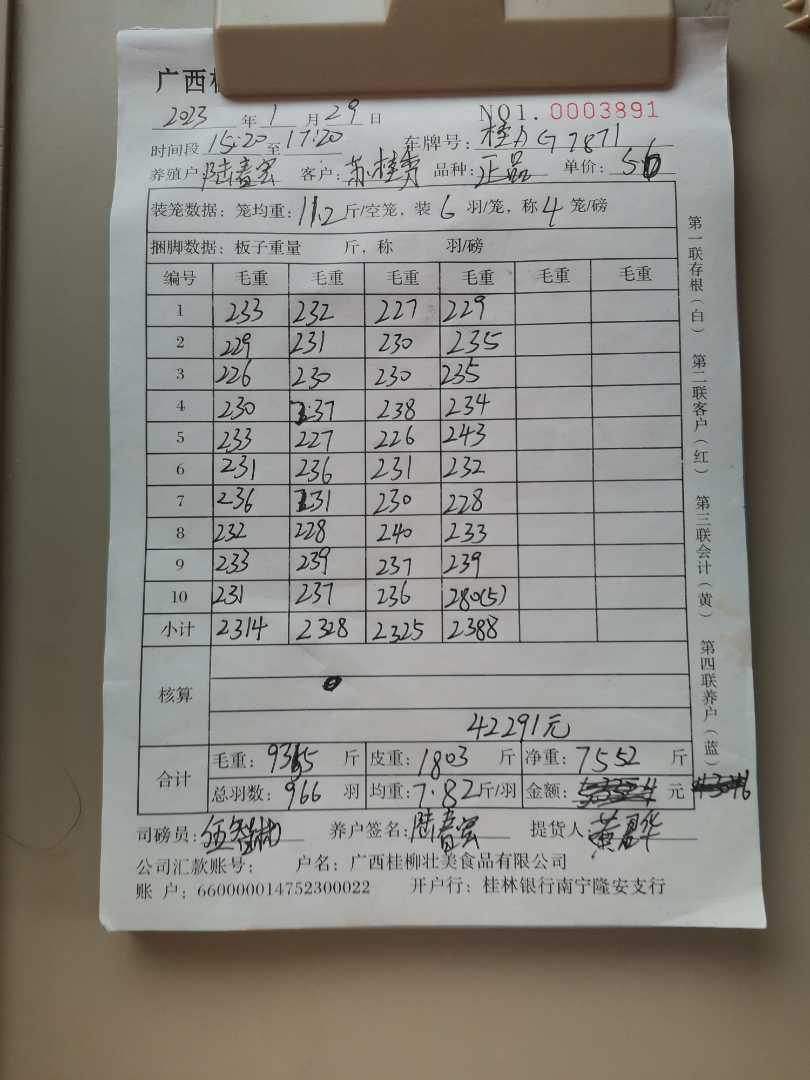 广西桂
2023年1月29日 NO1. 0003891
时间段15:20至17:20 车牌号:桂AG7871
养殖户陆春宏 客户:苏桂秀 品种:正品 单价:56
装笼数据:笼均重:11.2斤/空笼,装6羽/笼,称4笼/磅
捆脚数据:板子重量 斤,称 羽/磅
编号 毛重 毛重 毛重 毛重 毛重 毛重
1 233 232 227 229
2 229 231 230 235
3 226 230 230 235
4 230 237 238 234
5 233 227 226 243
6 231 236 231 232
7 236 231 230 228
8 232 228 240 233
9 233 239 237 239
10 231 237 236 280(5)
小计 2314 2328 2325 2388
核算
42291元
合计
毛重:9355斤 皮重:1803斤 净重:7552斤
总羽数:966羽 均重:7.82斤/羽 金额: 元
司磅员: 养户签名:陆春宏 提货人:黄
公司汇款账号: 户名:广西桂柳壮美食品有限公司
账 户:660000014752300022 开户行:桂林银行南宁隆安支行
第一联存根(白) 第二联客户(红) 第三联会计(黄) 第四联养户(蓝)